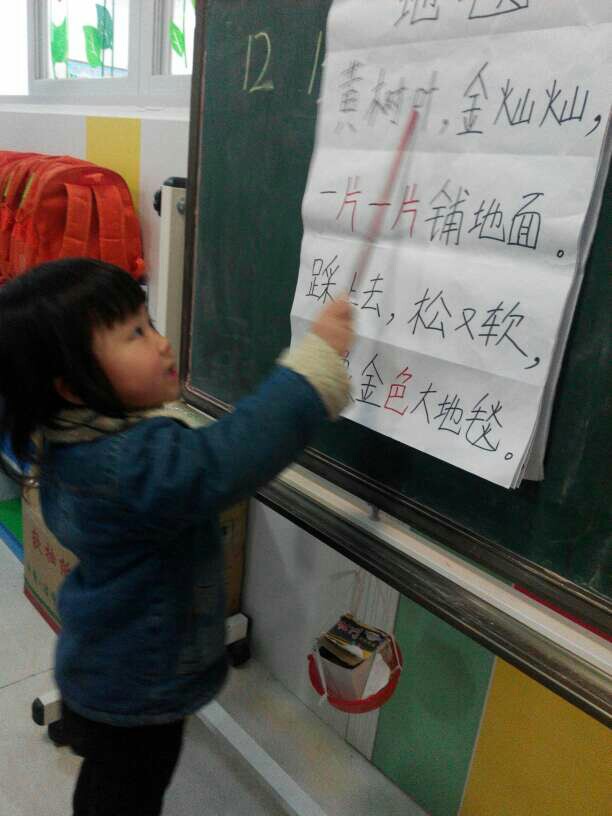 地毯
12
黄树叶，金灿灿，
一片一片铺地面。
踩上去，松又软，
金色大地毯。